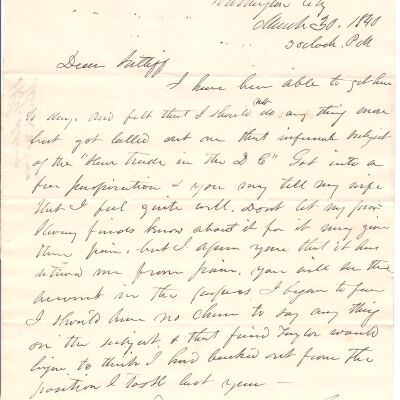 Washington City
March 30, 1840
3 oclock P.M
Dear Sutliff
I have been able to get here
to day. and felt that I should not do any thing more
but got called out on that infernal subject
of the "Slave trade in the D C" Got into a
fine perspiration & you may tell my wife
that I feel quite well. Dont let my
Slavery friends know about it for it may give
them pain, but I assure you that it has
me from pain. you will see the
account in the papers I began to fear
I should have no chance to say any thing
on the subject, & that friend Taylor would
begin to think I had backed out from the
position I took last year —